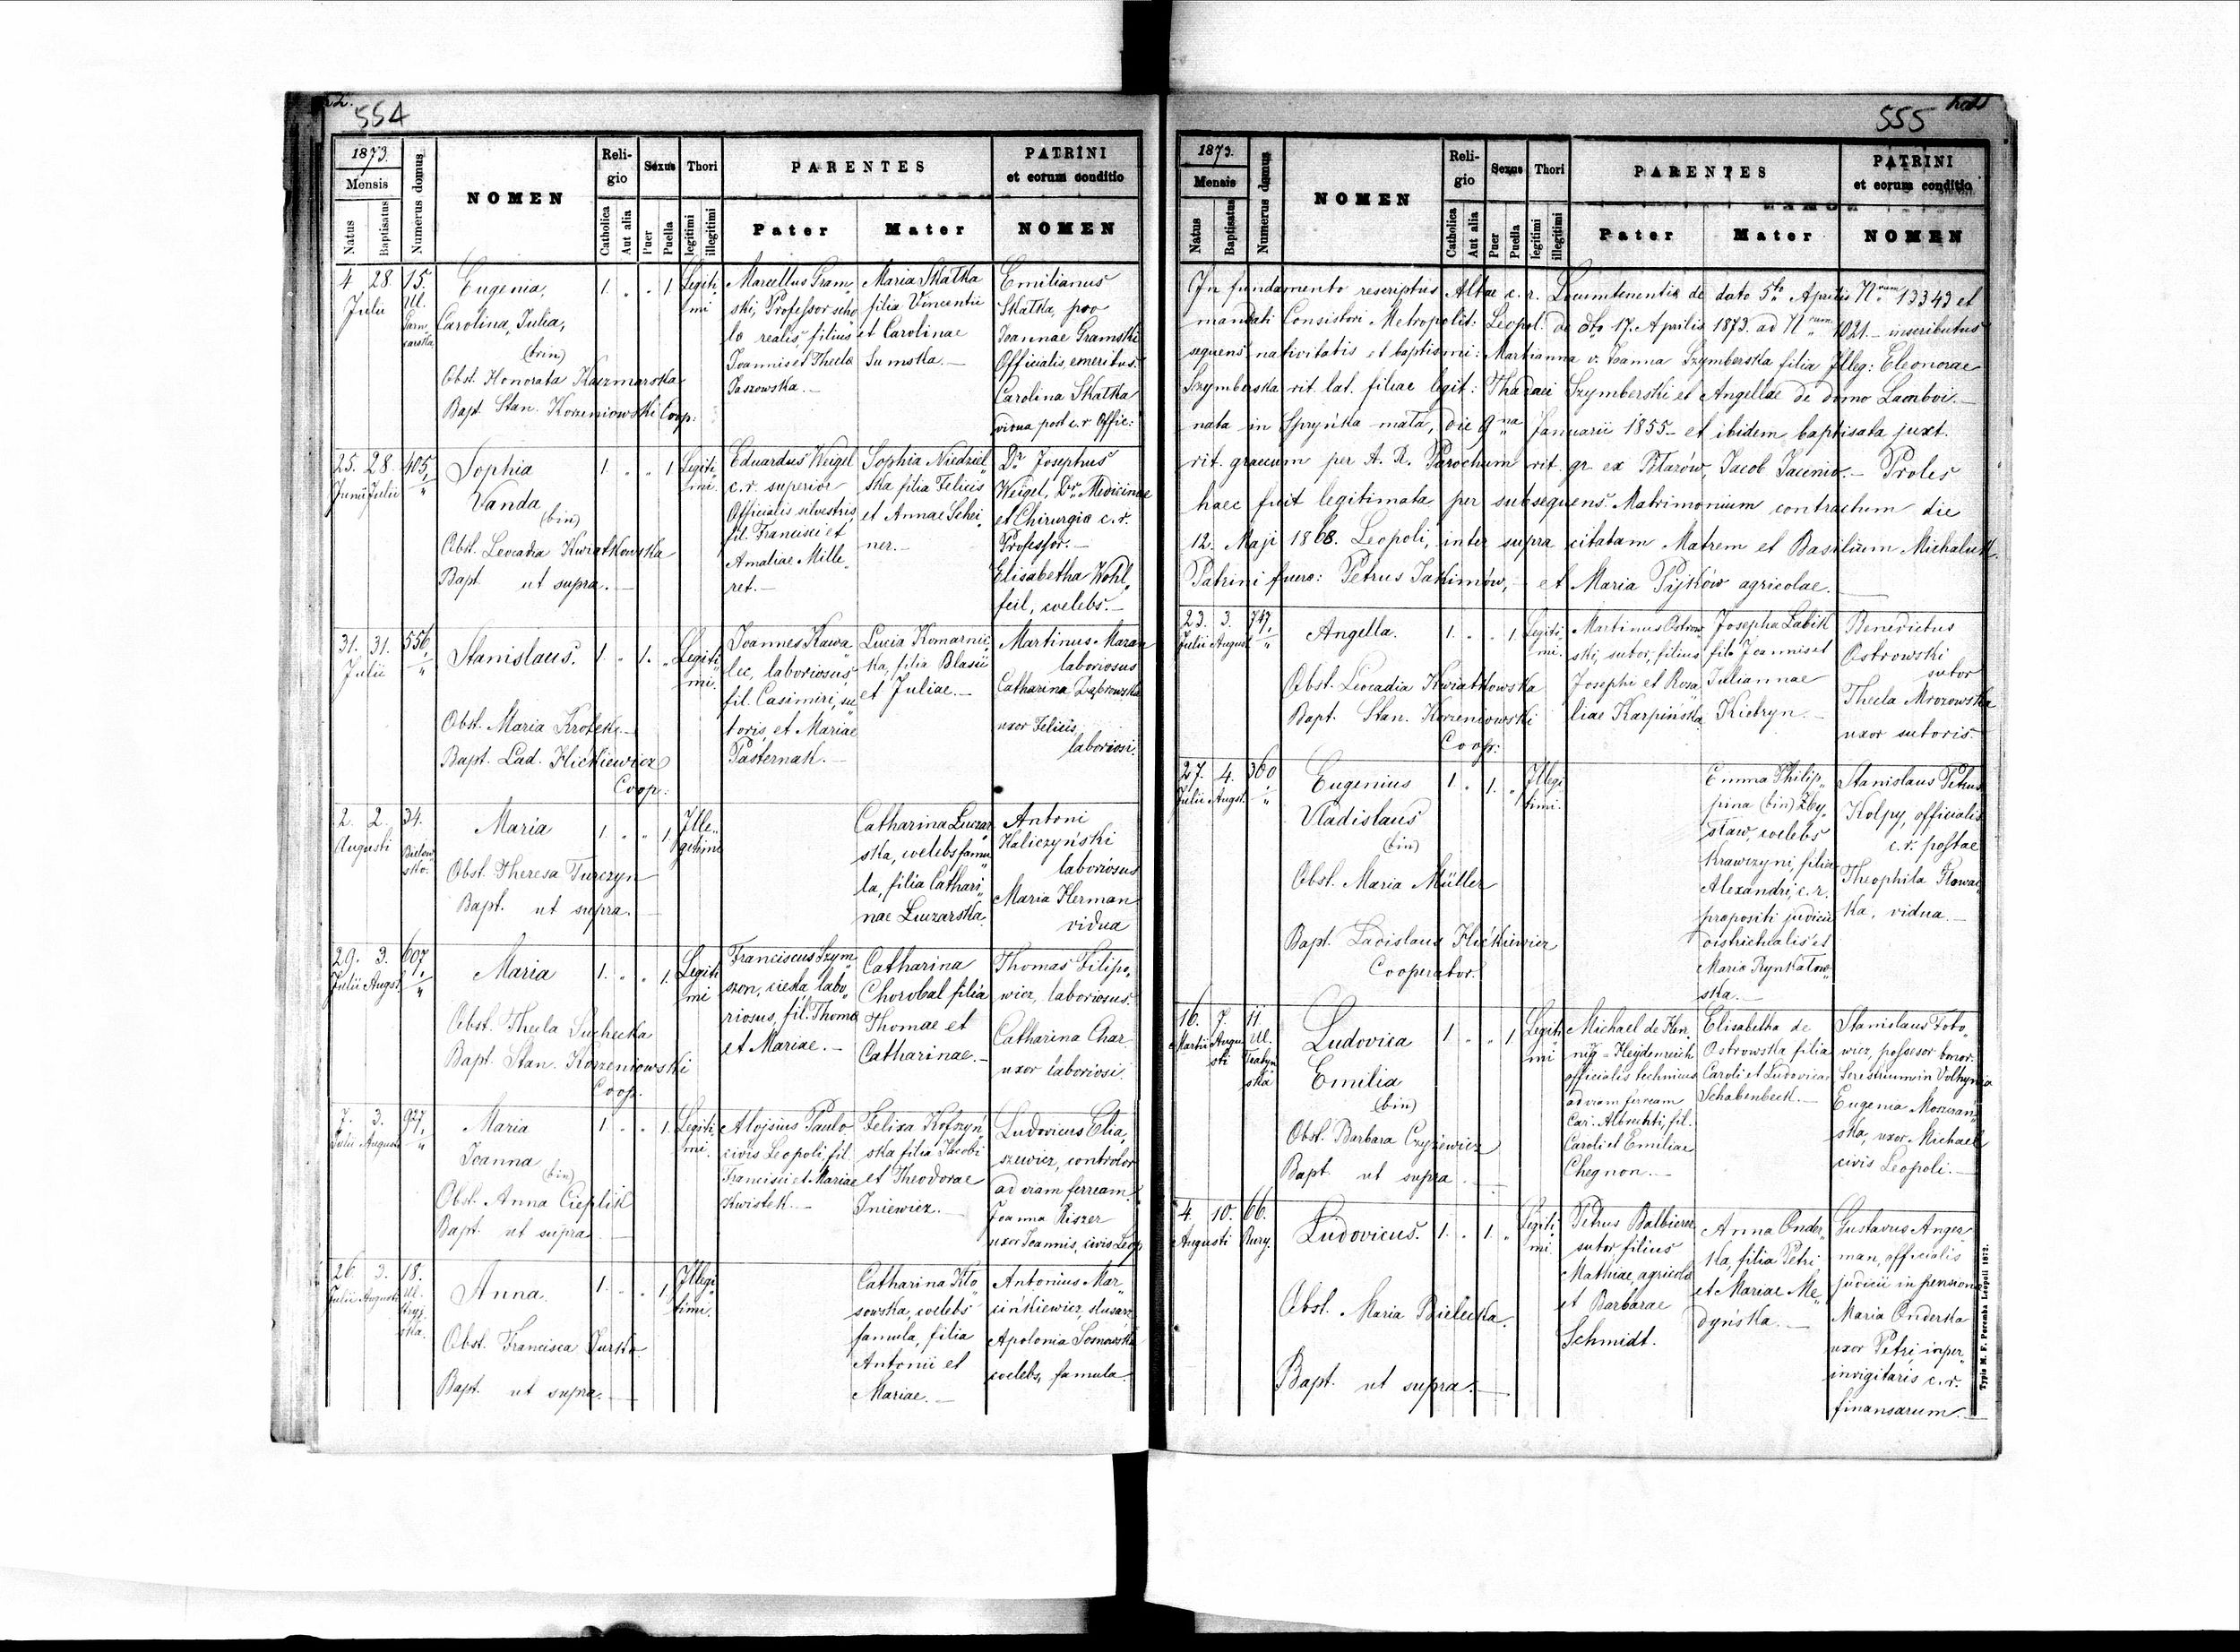 554
1873.
Mensis
Natus
Baptisatus
Numerus domus
NOMEN
Reli-
gio
Catholica
Aut alia
Sexus
Puer
Puella
Thori
legitimi
illegitimi
PARENTES
Pater
Mater
PATRINI
et eorum conditio
NOMEN
4 28. 15.
Julii
Ul.
Garn
carska
Eugenia,
Carolina, Julia,
(trin)
Obst. Honorata Kaczmarska
Bapt. Stan. Korzeniowski Coop:
1. " " 1.
Legiti
mi
Marcellus Gram„
ski, Professor scho
lo realis, filius
Joannis et Thecla
Jaszowska.—
Maria Skatka
filia Vincentii
et Carolinae
Sumska.—
Emilianus
Skatka, pro
Joannae Gramski
Officialis emeritus.
Carolina Skatka
vidua post c.r. Offic:
25. 28. 405,
Junii Julii "
Sophia
Vanda
(bin)
Obst. Leocadia Kwiatkowska
Bapt. ut supra.—
1. " " 1
Legiti
mi.
Eduardus Weigel
c.r. superior
Officialis silvestris,
fil. Francisci et
Amaliae Mille„
ret.—
Sophia Niedziel„
ska filia Felicis
et Annae Schei„
ner.—
Dr. Josephus
Weigel, Dr. Medicinae
et Chirurgia c.r.
Professor.—
Elisabetha Wohl„
feil, coelebs.—
31. 31. 556,
Julii "
Stanislaus.
Obst. Maria Krotek.—
Bapt. Lad. Hickiewicz
Coop:
1. " 1. "
Legiti
mi.
Joannes Kawa
lec, laboriosus,
fil. Casimiri, su
toris, et Mariae
Pasternak.—
Lucia Komarnic„
ka, filia Blasii
et Juliae.—
Martinus Maran
laboriosus
Catharina Dąbrowska
uxor Felicis
laboriosi.
2. 2. 34.
Augusti
Bielow
sko.
Maria
Obst. Theresa Turczyn
Bapt. ut supra.—
1. " " 1.
Ille„
gitimi
Catharina Luczar„
ska, coelebs famu
la, filia Cathari„
nae Luczarska.
Antoni
Kaliczyński
laboriosus
Maria Herman
vidua
29. 3. 607,
Julii Augst. "
Maria
Obst. Thecla Suchecka
Bapt. Stan. Korzeniowski
Coop.
1. " " 1.
Legiti
mi
Franciscus Szym„
szon, cieśla labo„
riosus, fil. Thoma
et Mariae.—
Catharina
Chorobal filia
Thomae et
Catharinae.—
Thomas Filipo„
wicz, laboriosus.
Catharina Char
uxor laboriosi.
7. 3. 927,
Julii Augusti "
Maria
Joanna
(bin)
Obst. Anna Cieplik
Bapt. ut supra.—
1. " " 1.
Legiti
mi.
Alojsius Paulo
civis Leopoli, fil.
Francisci et Mariae
Kwistek.—
Felixa Kofszyń„
ska filia Jacobi
et Theodorae
Iniewicz.—
Ludovicus Elia„
szewicz, controlor
ad viam ferream.
Joanna Riszer
uxor Joannis, civis Leop.
26. 3. 18.
Julii Augusti
Ul.
Stryj
ska.
Anna.
Obst. Francisca Jurska.
Bapt. ut supra.—
1. " " 1.
Illegi
timi.
Catharina Kło„
sowska, coelebs
famula, filia
Antonii et
Mariae.—
Antonius Mar„
cinkiewicz, slusarz
Apolonia Sosnowska
coelebs, famula.
555
1873.
Mensis
Natus
Baptisatus
Numerus domus
NOMEN
Reli-
gio
Catholica
Aut alia
Sexus
Puer
Puella
Thori
legitimi
illegitimi
PARENTES
Pater
Mater
PATRINI
et eorum conditio
NOMEN
In fundamento rescriptus Altae c. r. Locumtenentia de dato 5to Aprilis Nrum 13343 et
mandati Consistori Metropolit: Leopol: de dto 17. Aprilis 1873. ad Nrum 1021.— inscributus
sequens nativitatis et baptismi: Martianna v. Joanna Szymberska filia Illeg: Eleonorae
Szymberska rit. lat. filiae legit: Thadaei Szymberski et Angellae de domo Lamboi.—
nata in Spryńka mała, die 9na Januarii 1855— et ibidem baptisata juxt.
rit. graecum per A. R. Parochum rit. gr. ex Tatarów, Jacob Jacenio.— Proles
haec fuit legitimata per subsequens Matrimonium contractum die
12. Maji 1868. Leopoli, inter supra citatam Matrem et Basilium Michaluk.
Patrini fuere: Petrus Jakimów,— et Maria Pijków agricolae.—
23. 3. 747,
Julii August "
Angella.
Obst. Leocadia Kwiatkowska
Bapt. Stan. Korzeniowski
Coop:
1. " " 1.
Legiti„
mi.
Martinus Ostrow„
ski, sutor, filius
Josephi et Rosa„
liae Karpińska.
Josepha Labik
fila Joannis et
Juliannae
Kietryn.—
Benedictus
Ostrowski
sutor
Thecla Mrozowska
uxor sutoris.
27. 4. 360
Julii Augst. "
Eugenius
Vladislaus
(bin)
Obst. Maria Müller
Bapt. Ladislaus Hickiewicz
Cooperator.
1. " 1. "
Illegi
timi.
Emma Philip„
pina (bin) Zby„
staw, coelebs
krawczyni, filia
Alexandri, c.r.
propositi judicii
districtualis et
Maria Rynkatow„
ska.—
Stanislaus Petrus
Kolpy, officialis
c.r. postae
Theophila Nowac„
ka, vidua.—
16. 7. 11
Martii Augu
sti
Ul.
Ludovica
Emilia
(bin)
Obst. Barbara Czyżewicz
Bapt. ut supra.—
1 " " 1
Legiti
mi
Michael de Hen„
nig=Heydenreich
officialis technicus
ad viam ferream
Car. Albrechti, fil.
Caroli et Emiliae
Chegnon.—
Elisabetha de
Ostrowska filia
Caroli et Ludovica
Schabenbeck.—
Stanislaus Foto„
wicz, possesor bonor.
in Volhynia
Eugenia Morawań„
ska, uxor Michael
civis Leopoli.—
4. 10. 66.
Augusti Rury.
Ludovicus.
Obst. Maria Bielecka.
Bapt. ut supra.—
1. " 1. "
Legiti„
mi.
Petrus Balbierer
sutor filius
Mathiae, agricola
et Barbarae
Schmidt.
Anna Onder„
ka, filia Petri
et Mariae Me„
dyńska.—
Gustavus Anger
man, officialis
judicii in pension
Maria Onderka
uxor Petri, inper„
invigitaris c.r.
finansarum.—
Typis M. F. Poremba Leopoli 1872.